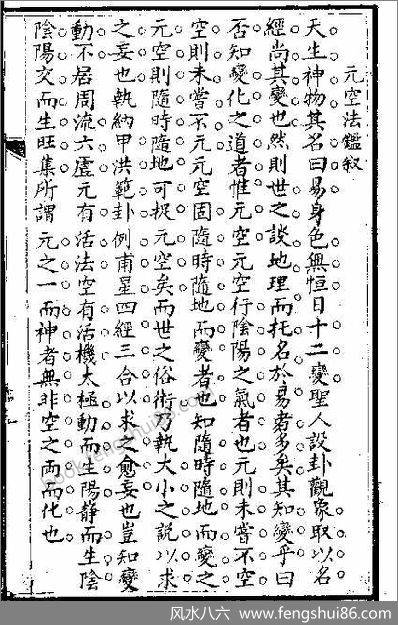 元空法鑑叙
天生神物其名曰易身色無恒日十二變聖人設卦觀象取以名
經尚其變也然則世之談地理而托名於易者多矣其知變乎曰
否知變化之道者惟元空元空行陰陽之氣者也元則未嘗不空
空則未嘗不元元空固隨時隨地而變者也知隨時隨地而變之
元空則隨時隨地可捉元空矣而世之俗術乃執大小之説以求
之妄也執納甲洪範卦例甫星四經三合以求之愈妄也豈知變
動不居周流六虛元有活法空有活機太極動而生陽靜而生陰
陰陽交而生旺集所謂元之一而神者無非空之两而化也
风水八六 - www.fengshui86.com